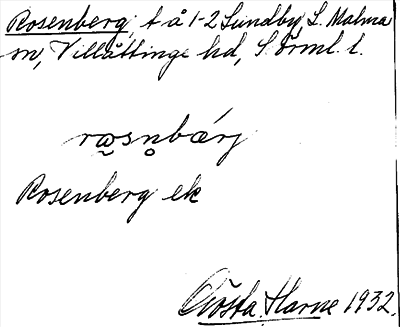 Rosenberg, t å 1-2 Sundby, L. Malma
sn, Villåttinge hd, Sörml. l.
rω̬sn̥bærj
Rosenberg ek
Gösta Harne 1932.